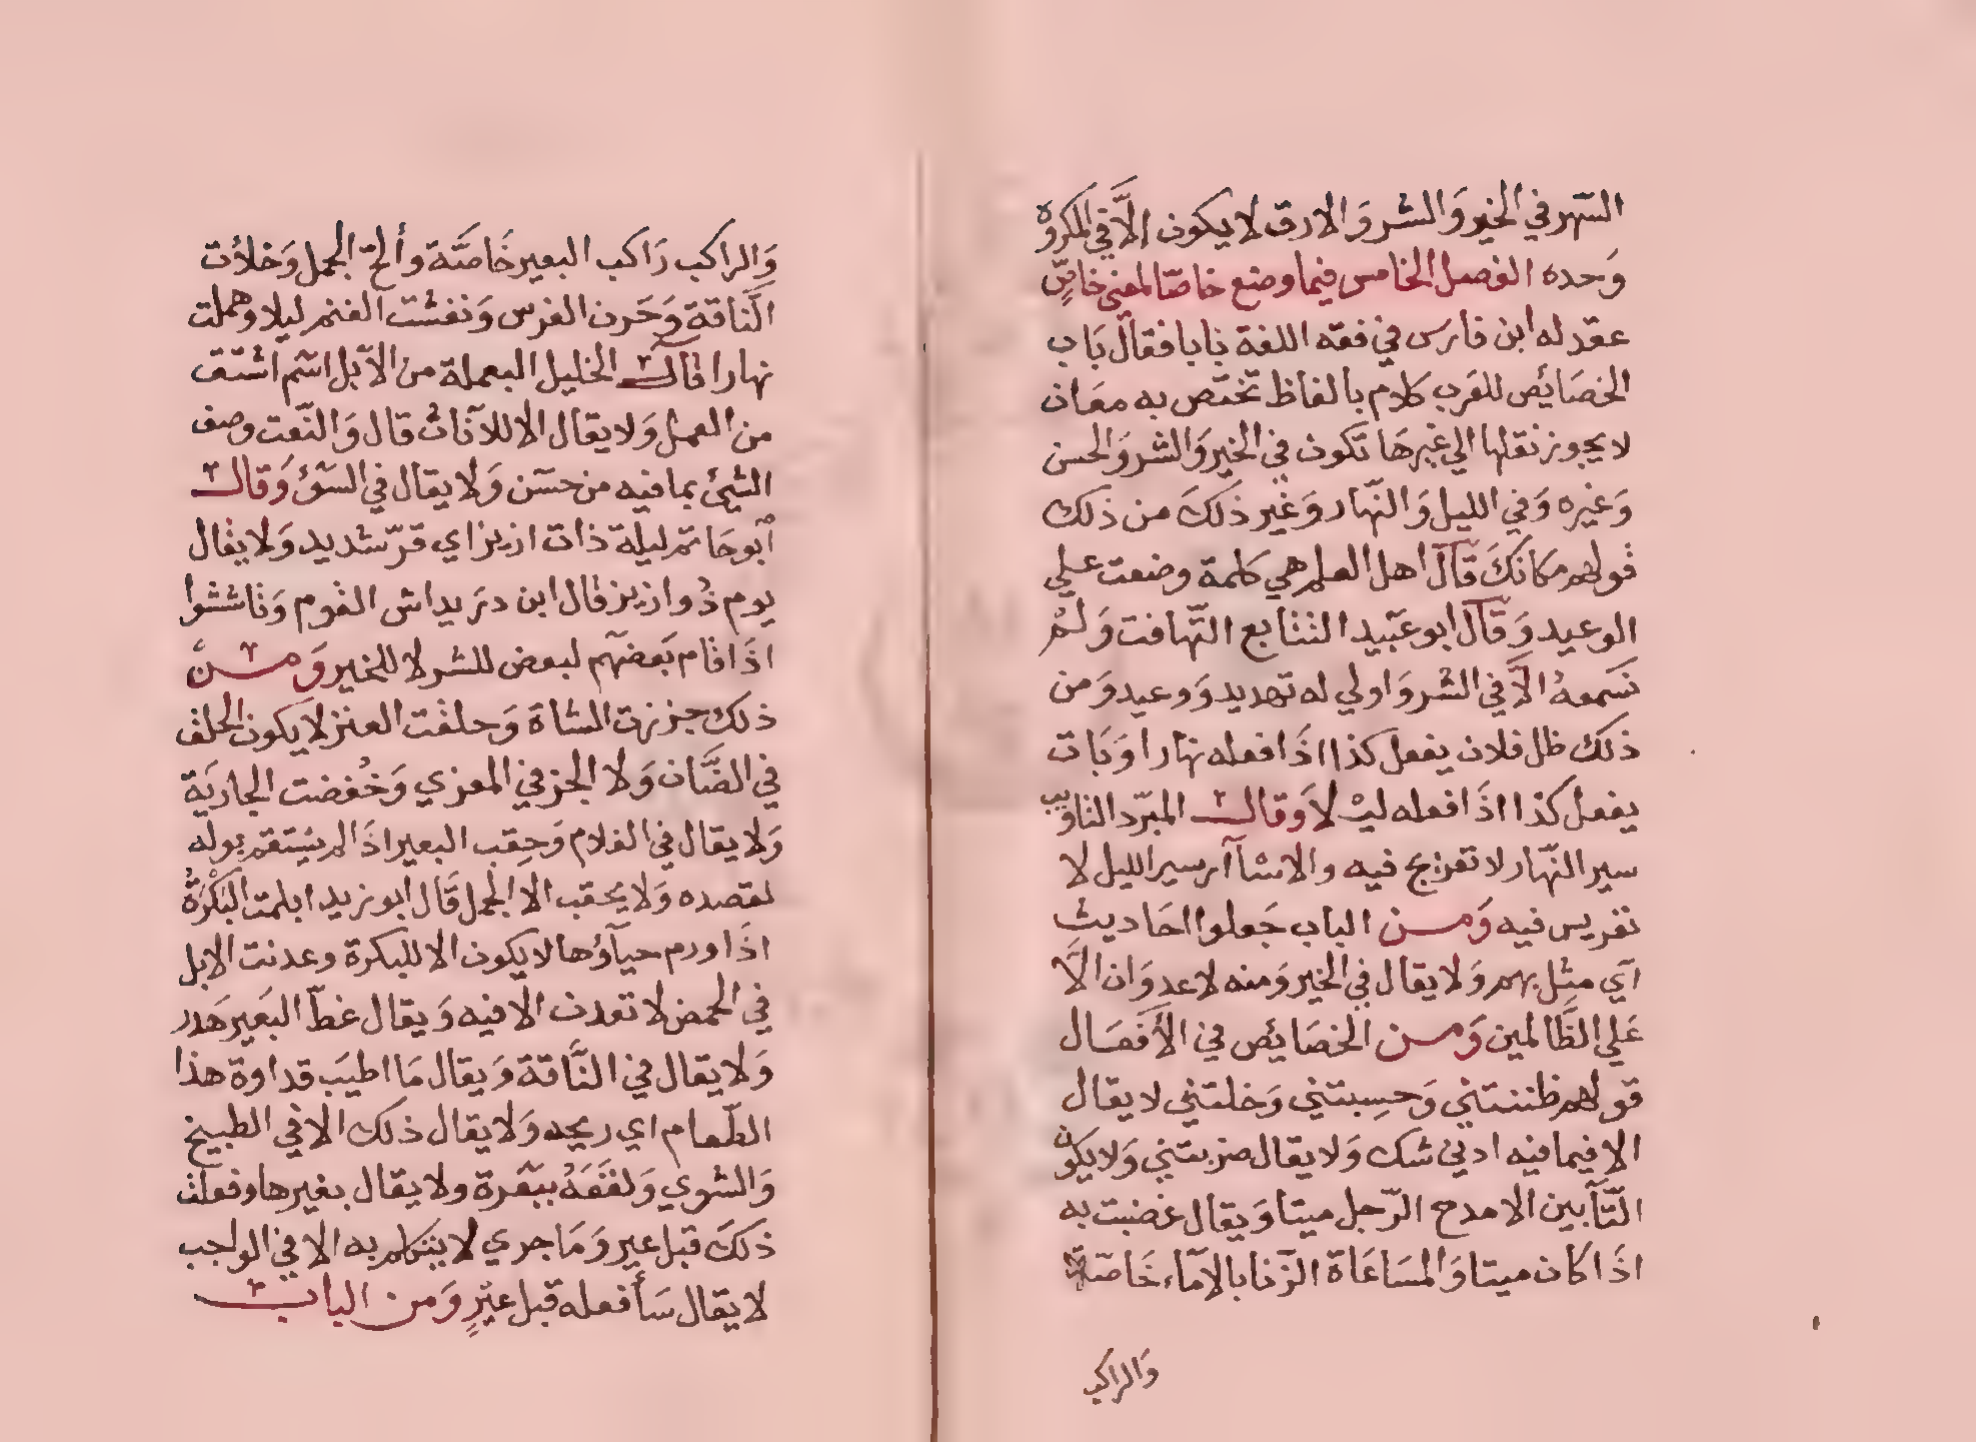 السّهر في الخير وَالشر وَالارق لا يكون الَّا في المكروه
وَحده الفصل الخامس فيما وضع خاصّا لمعنى خاصٍّ
عقد له ابن فارس في فقه اللغة بابا فقال بَاب
الخصَايُص للعَرب كلام بالفاظ تختّص به معَان
لا يجوز نقلها الي غيرهَا تكون في الخير وَالشر وَالحسن
وَغيره وَفي الليل وَالنّهار وَغير ذلكَ من ذلك
قولهم مكانكَ قَالَ اهل العلم هي كلمة وضعت علي
الوعيد وَقَالَ ابو عبَيد التتابع التّهافت وَلمْ
نسَمعهُ الاَّ في الشر وَاولي له تهديد وَوعيد وَمن
ذلك ظل فلان يفعل كذا اذَا فعله نهارا وَبَات
يفعل كذا اذَا فعله ليْلاَ وَقال المبرّد التاويب
سير النّهار لا تعريج فيه والاسْآآر سير الليل لا
تعريس فيه وَمن الباب جَعلوا احَاديث
آي مثل بهم وَلا يقال في الخير وَمنه لا عدوَان الاَّ
عَلي الظَّالمين وَمن الخصَايُص في الأَفعَال
قولهم ظننتني وَحسِبتني وَخلتني لا يقال
الا فيما فيه ادني شك وَلا يقال ضربتني وَلا يكون
التَّآبين الا مدح الرّجل ميتا وَيقال غضبت به
اذَا كان ميتا وَالمسَاعَاة الزّنا بالاِمَآء خَاصّة
وَالراكب
وَالراكب رَاكب البعير خَاصَّة وألحّ الجمل وَخلأت
النَّاقة وَحَرن الفرس وَنفشت الغنم ليلا وهملت
نهارا قال الخليل اليعملة من الآبل اسٓم اشتق
من العمل وَلا يقال الا للآناث قال وَالنّعت وصف
الشئ بما فيه من حسَن وَلا يقال في السَوُء وَقال
أبو حَاتم ليلة ذات ازيز اي قرّ شديد وَلا يقال
يوم ذُو ازيز قال ابن دريد اش القوم وَتاششوا
اذَا قام بَعضهَم لبعض للشر لا للخير وَمن
ذلك جززت الشاة وَحلقت العنز لا يكون الحلق
في الضَّان وَلا الجز في المعزي وَخُفضت الجاريَة
وَلا يقال في الغلام وَحِقب البعير اذَا لم يسَتقم بوله
لقصده وَلا يَحقب الا الجمل قَال ابو زيد ابلمت البَكْرَةُ
اذَا ورم حيآؤها لا يكون الا للبكرة وعدنت الابل
في الحمض لا تعدن الَّا فيه وَيقال غطّ البَعير هَدر
وَلا يقال في النَّاقة وَيقال مَا اطيَب قداوة هذا
الطّعام اي ريحه وَلا يقال ذلك الا في الطبيخ
وَالشوي وَلقَعَهُ ببَعَرة ولا يقال بغيرها وفعلت
ذلكَ قبل عير وَمَا جري لا يتكلم به الا في الواجب
لا يقال سَأفعله قبل عيْرٍ وَمن الباب